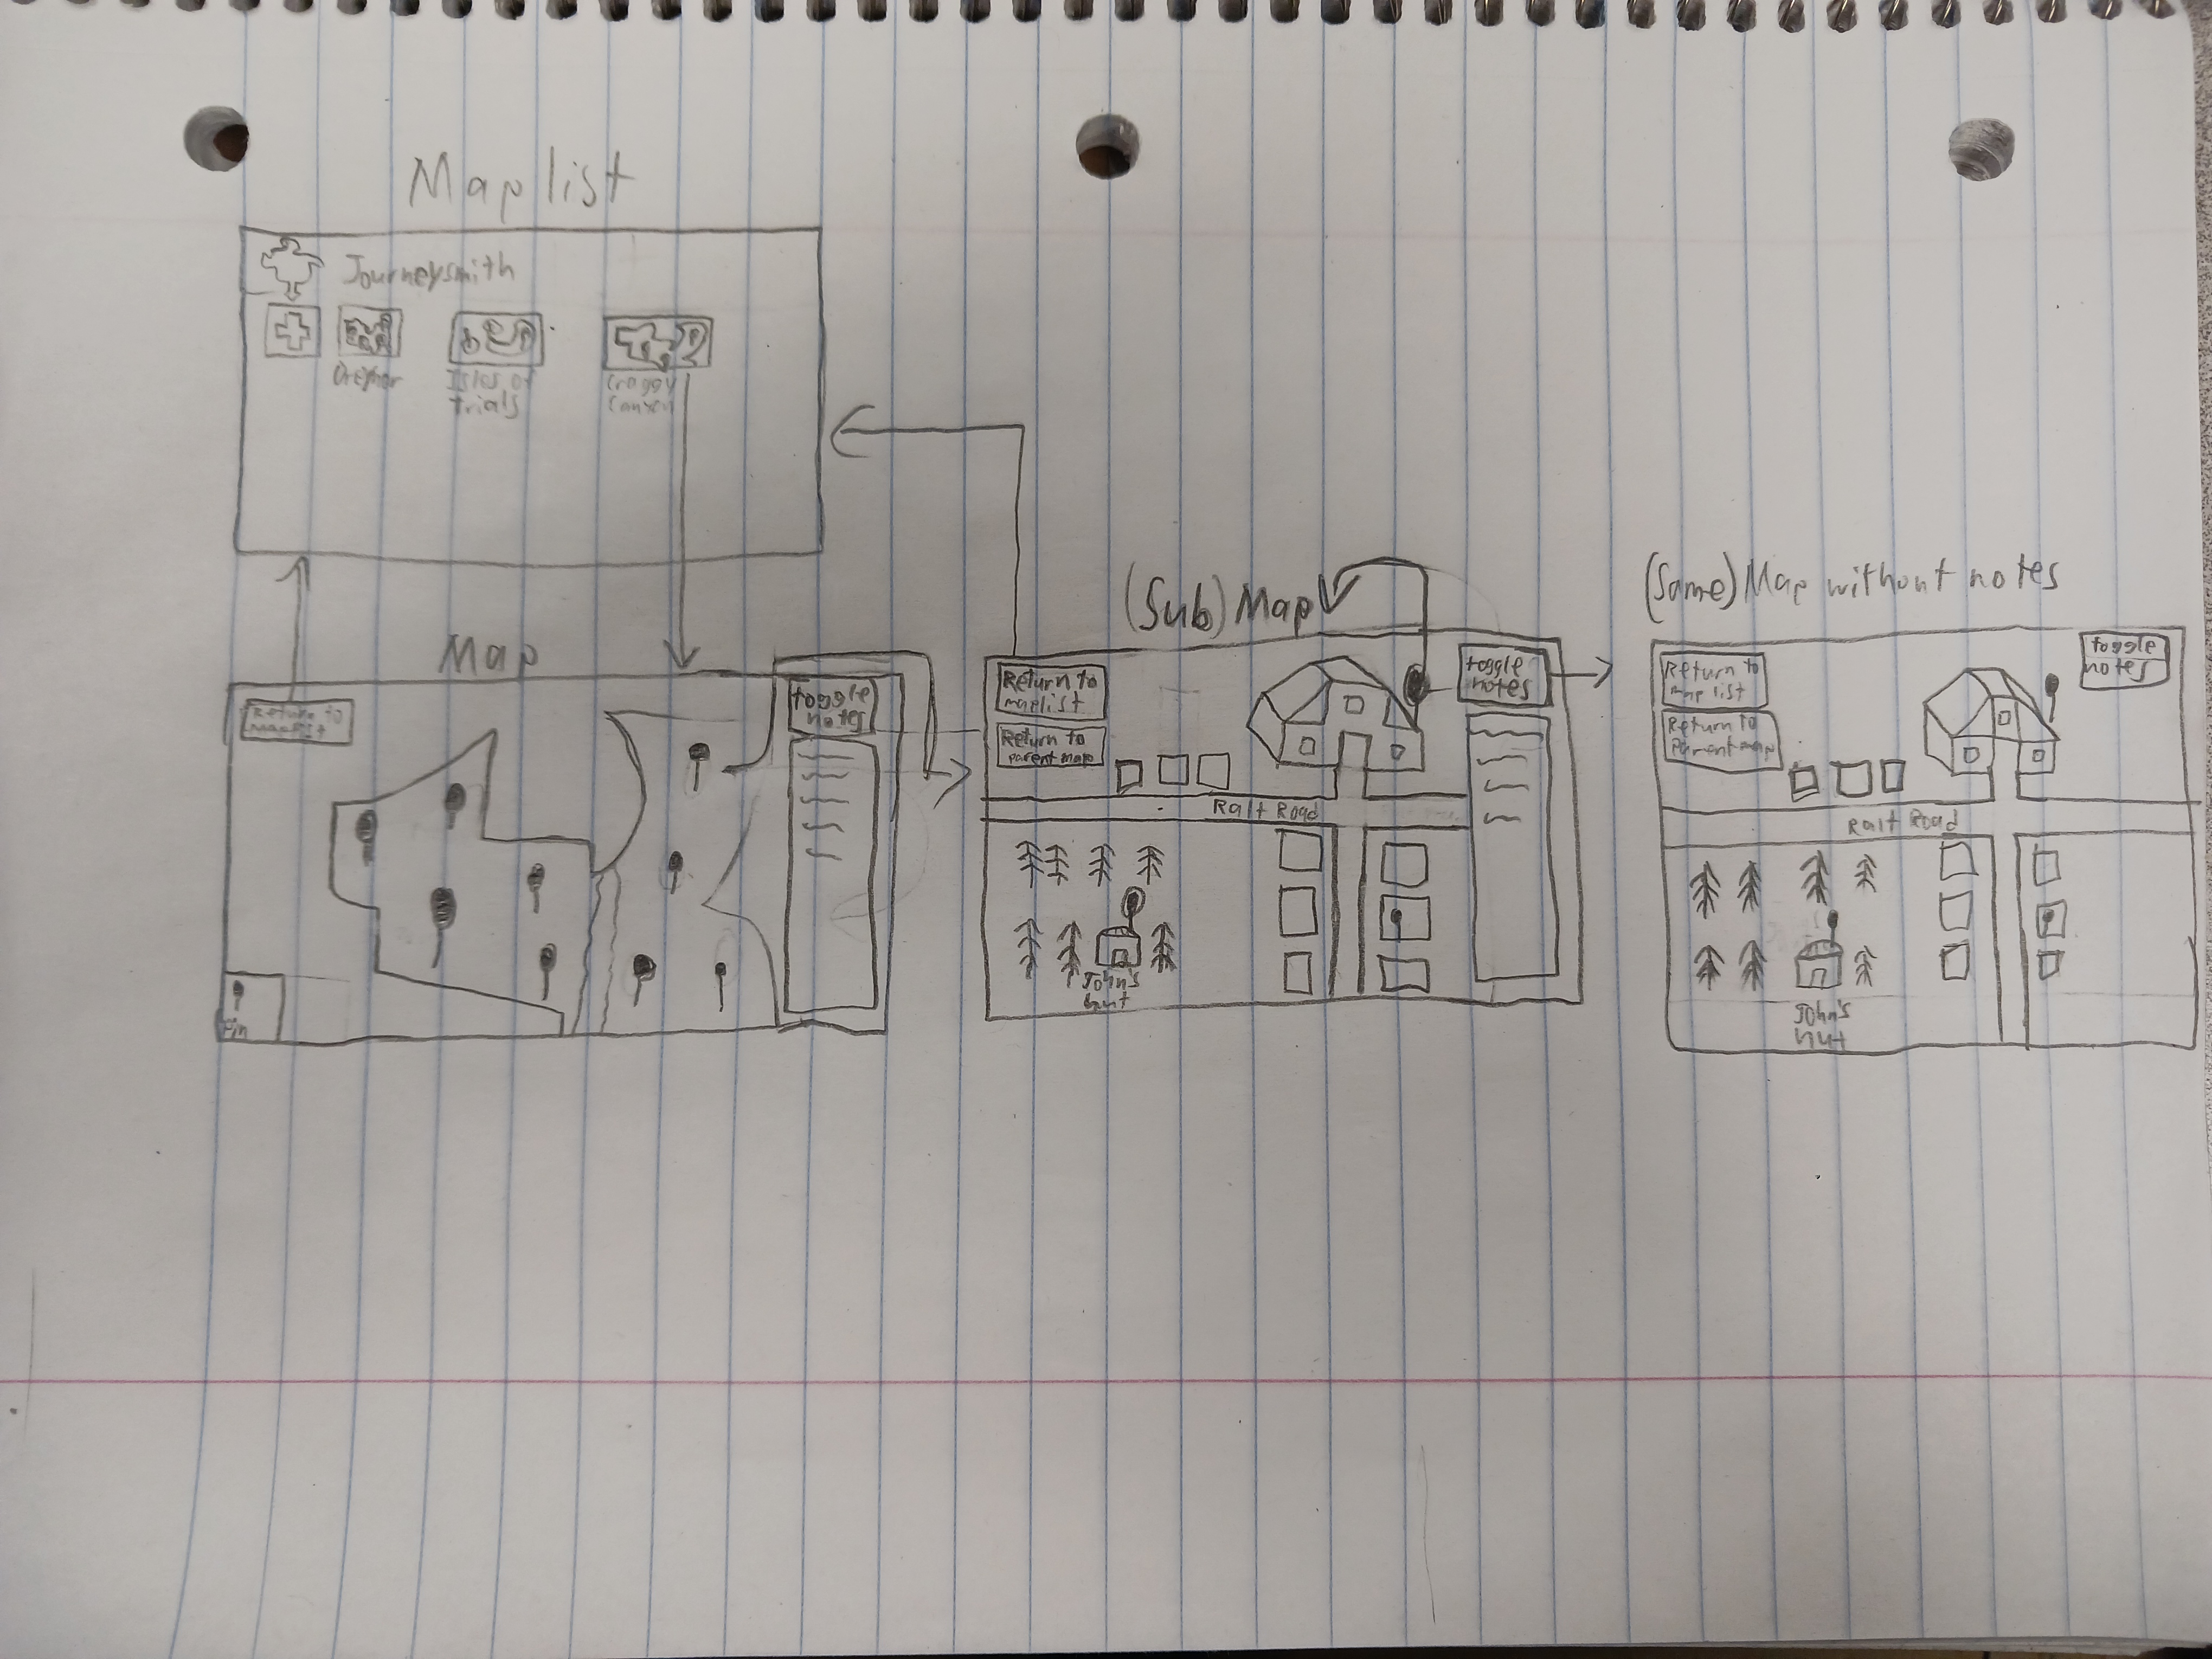 Map list
Journeysmith
Isles of
trials
Craggy
Canyon
Map
Return to
maplist
toggle
notes
Pin
(Sub) Map
Return to
maplist
Return to
parent map
toggle
notes
Ralt Road
John's
hut
(Same) Map without notes
Return to
map list
Return to
Parent map
toggle
notes
Ralt Road
John's
hut